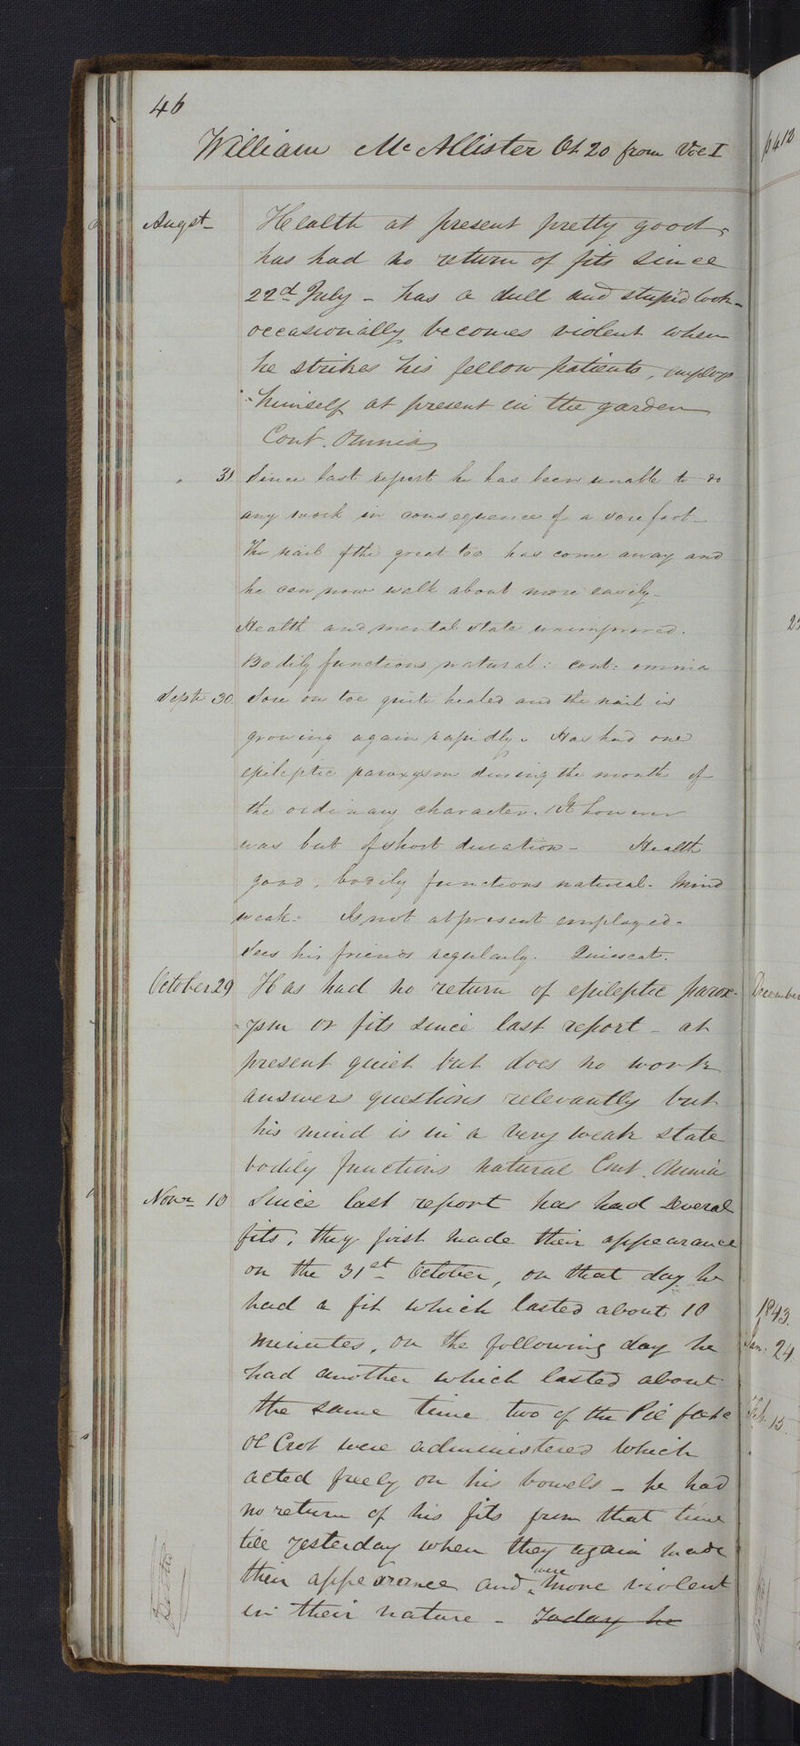 46
William McAllister Æt 20 from Vol I
Augst Health at present pretty good,
has had no return of fits since
22d July - has a dull and stupid look -
occasionally becomes violent when
he strikes his fellow patients, employs
himself at present in the garden
Cont. Omnia
" 31 Since last report he has been unable to do
any work in consequence of a sore foot -
The nail of the great toe has come away and
he can now walk about more easily -
Health and mental state unimproved.
Bodily functions natural: cont: omnia
Septr 30 Sore on toe quite healed and the nail is
growing again rapidly. Has had one
epileptic paroxysm during the month of
the ordinary character. It however
was but of short duration - Health
good, bodily functions natural. Mind
weak. Is not at present employed.
Sees his friends regularly. Quiescat.
October 29 Has had no return of epileptic parox-
-ysm or fits since last report - at
present quiet but does no work
answers questions relevantly but
his mind is in a very weak state
bodily functions natural Cont. Omnia
Novr 10 Since last report has had several
fits, they first made their appearance
on the 31st October, on that day he
had a fit which lasted about 10
minutes, on the following day he
had another which lasted about
the same time two of the Pil
Ol Crot were administered which
acted freely on his bowels - he had
no return of his fits from that time
till yesterday when they again made
their appearance and were more violent
in their nature - Today he
p 412
December
1843.
Jan. 24
Feb. 15.